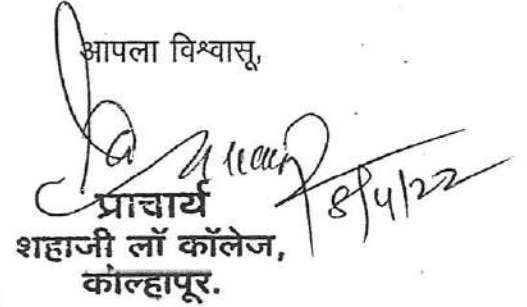 आपला विश्वासू,
8/4/22
प्राचार्य
शहाजी लॉ कॉलेज,
कोल्हापूर.